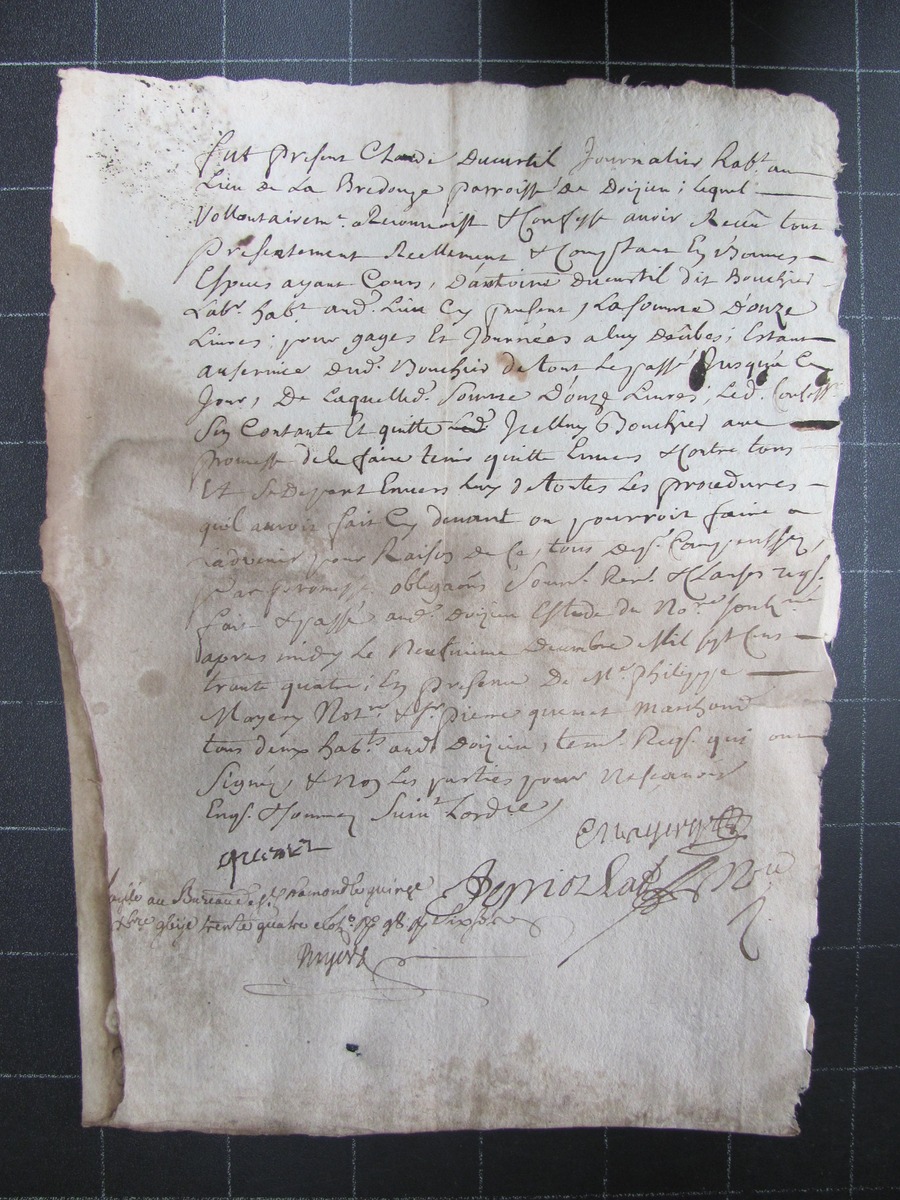 fut present Claude Ducurtil Journalier habt. au
Lieu de La Bredouze parroisse de Doizieu ; lequel
Vollontairemt. a Reconnoist & Confesse auoir Receu tout
presentement Reellement & Comptant En Bonnes
Especes ayant Cours, d'antoine Ducurtil dit Bouchier
Labr. habt. aud. Lieu Cy present, La somme D'onze
Liures pour gages Et Journées a luy Deübes ; Estant
au seruice dud. Bouchier de tout Le passé Jusqu'à Ce
Jour, De Laquelle d. Somme D'onze Liures, Led. Confess.
Sen Contante Et quitte Icelluy Bouchier auec
promesse de le faire tenir quitte Enuers & Contre tous
Et se Depart Enuers Luy de toutes Les procedures
quil auroit fait Cy deuant ou pourroit faire a
Laduenir pour Raison de Ce, tous Desp. Compensses,
Par promesse obligaons Soum. Ren. & Clauses reqs.
fait & passé aud. Doizieu Estude du Nore. soubne.
apres midy Le Neufuieme Decembre Mil sept Cens
trante quatre ; En presence De Me. philippe
Mayery Notre. & sr. pierre quenet Marchand
tous deux habts. aud. Doizieu, tem. Reqs. qui ont
Signé, & Non Les parties pour Ne sçauoir
Enqs. & Sommez Suiut. Lordce.
quenet
Mayery
au Bureau de st. chamond le quinze
xbre. trente quatre